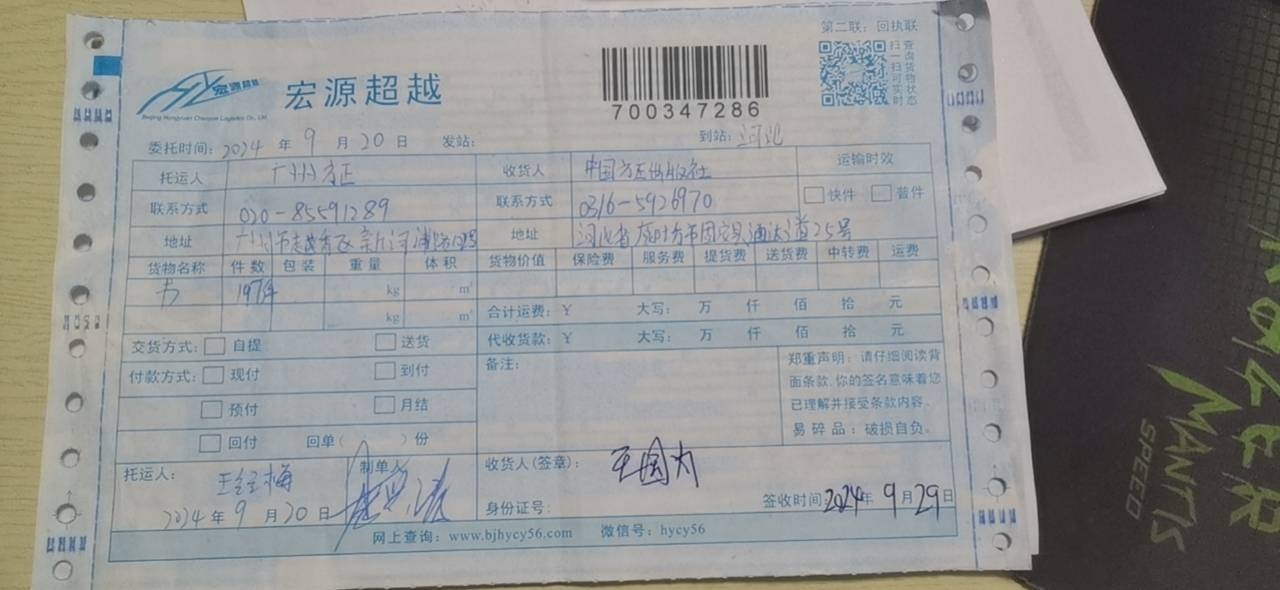 第二联：回执联
宏源超越
Beijing Hongyuan Chaoyue Logistics Co., Ltd.
宏源超越
700347286
扫一扫可实时
查询货物状态
委托时间：2024 年 9 月 20 日 发站： 到站：河北
托运人 广州方正 收货人 中国方正出版社 运输时效
联系方式 020-85591289 联系方式 0316-5926970 快件 普件
地址 广州市越秀区新河浦 地址 河北省廊坊市固安县通达道25号
货物名称 件数 包装 重量 体积 货物价值 保险费 服务费 提货费 送货费 中转费 运费
书 197件 kg m³
kg m³ 合计运费：¥ 大写： 万 仟 佰 拾 元
交货方式： 自提 送货 代收货款：¥ 大写： 万 仟 佰 拾 元
付款方式： 现付 到付 备注：
预付 月结
回付 回单（ ）份
郑重声明：请仔细阅读背
面条款，你的签名意味着您
已理解并接受条款内容。
易碎品：破损自负。
托运人： 制单人
2024 年 9 月 20 日
收货人（签章）： 王国为
身份证号： 签收时间 2024年 9月29日
网上查询：www.bjhycy56.com 微信号：hycy56
MANTIS
SPEED